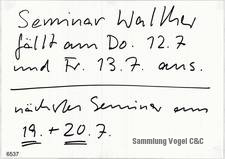 Seminar Walther
fällt am Do. 12.7
und Fr. 13.7 aus.
nächstes Seminar am
19. + 20. 7.
Sammlung Vogel C&C
6537